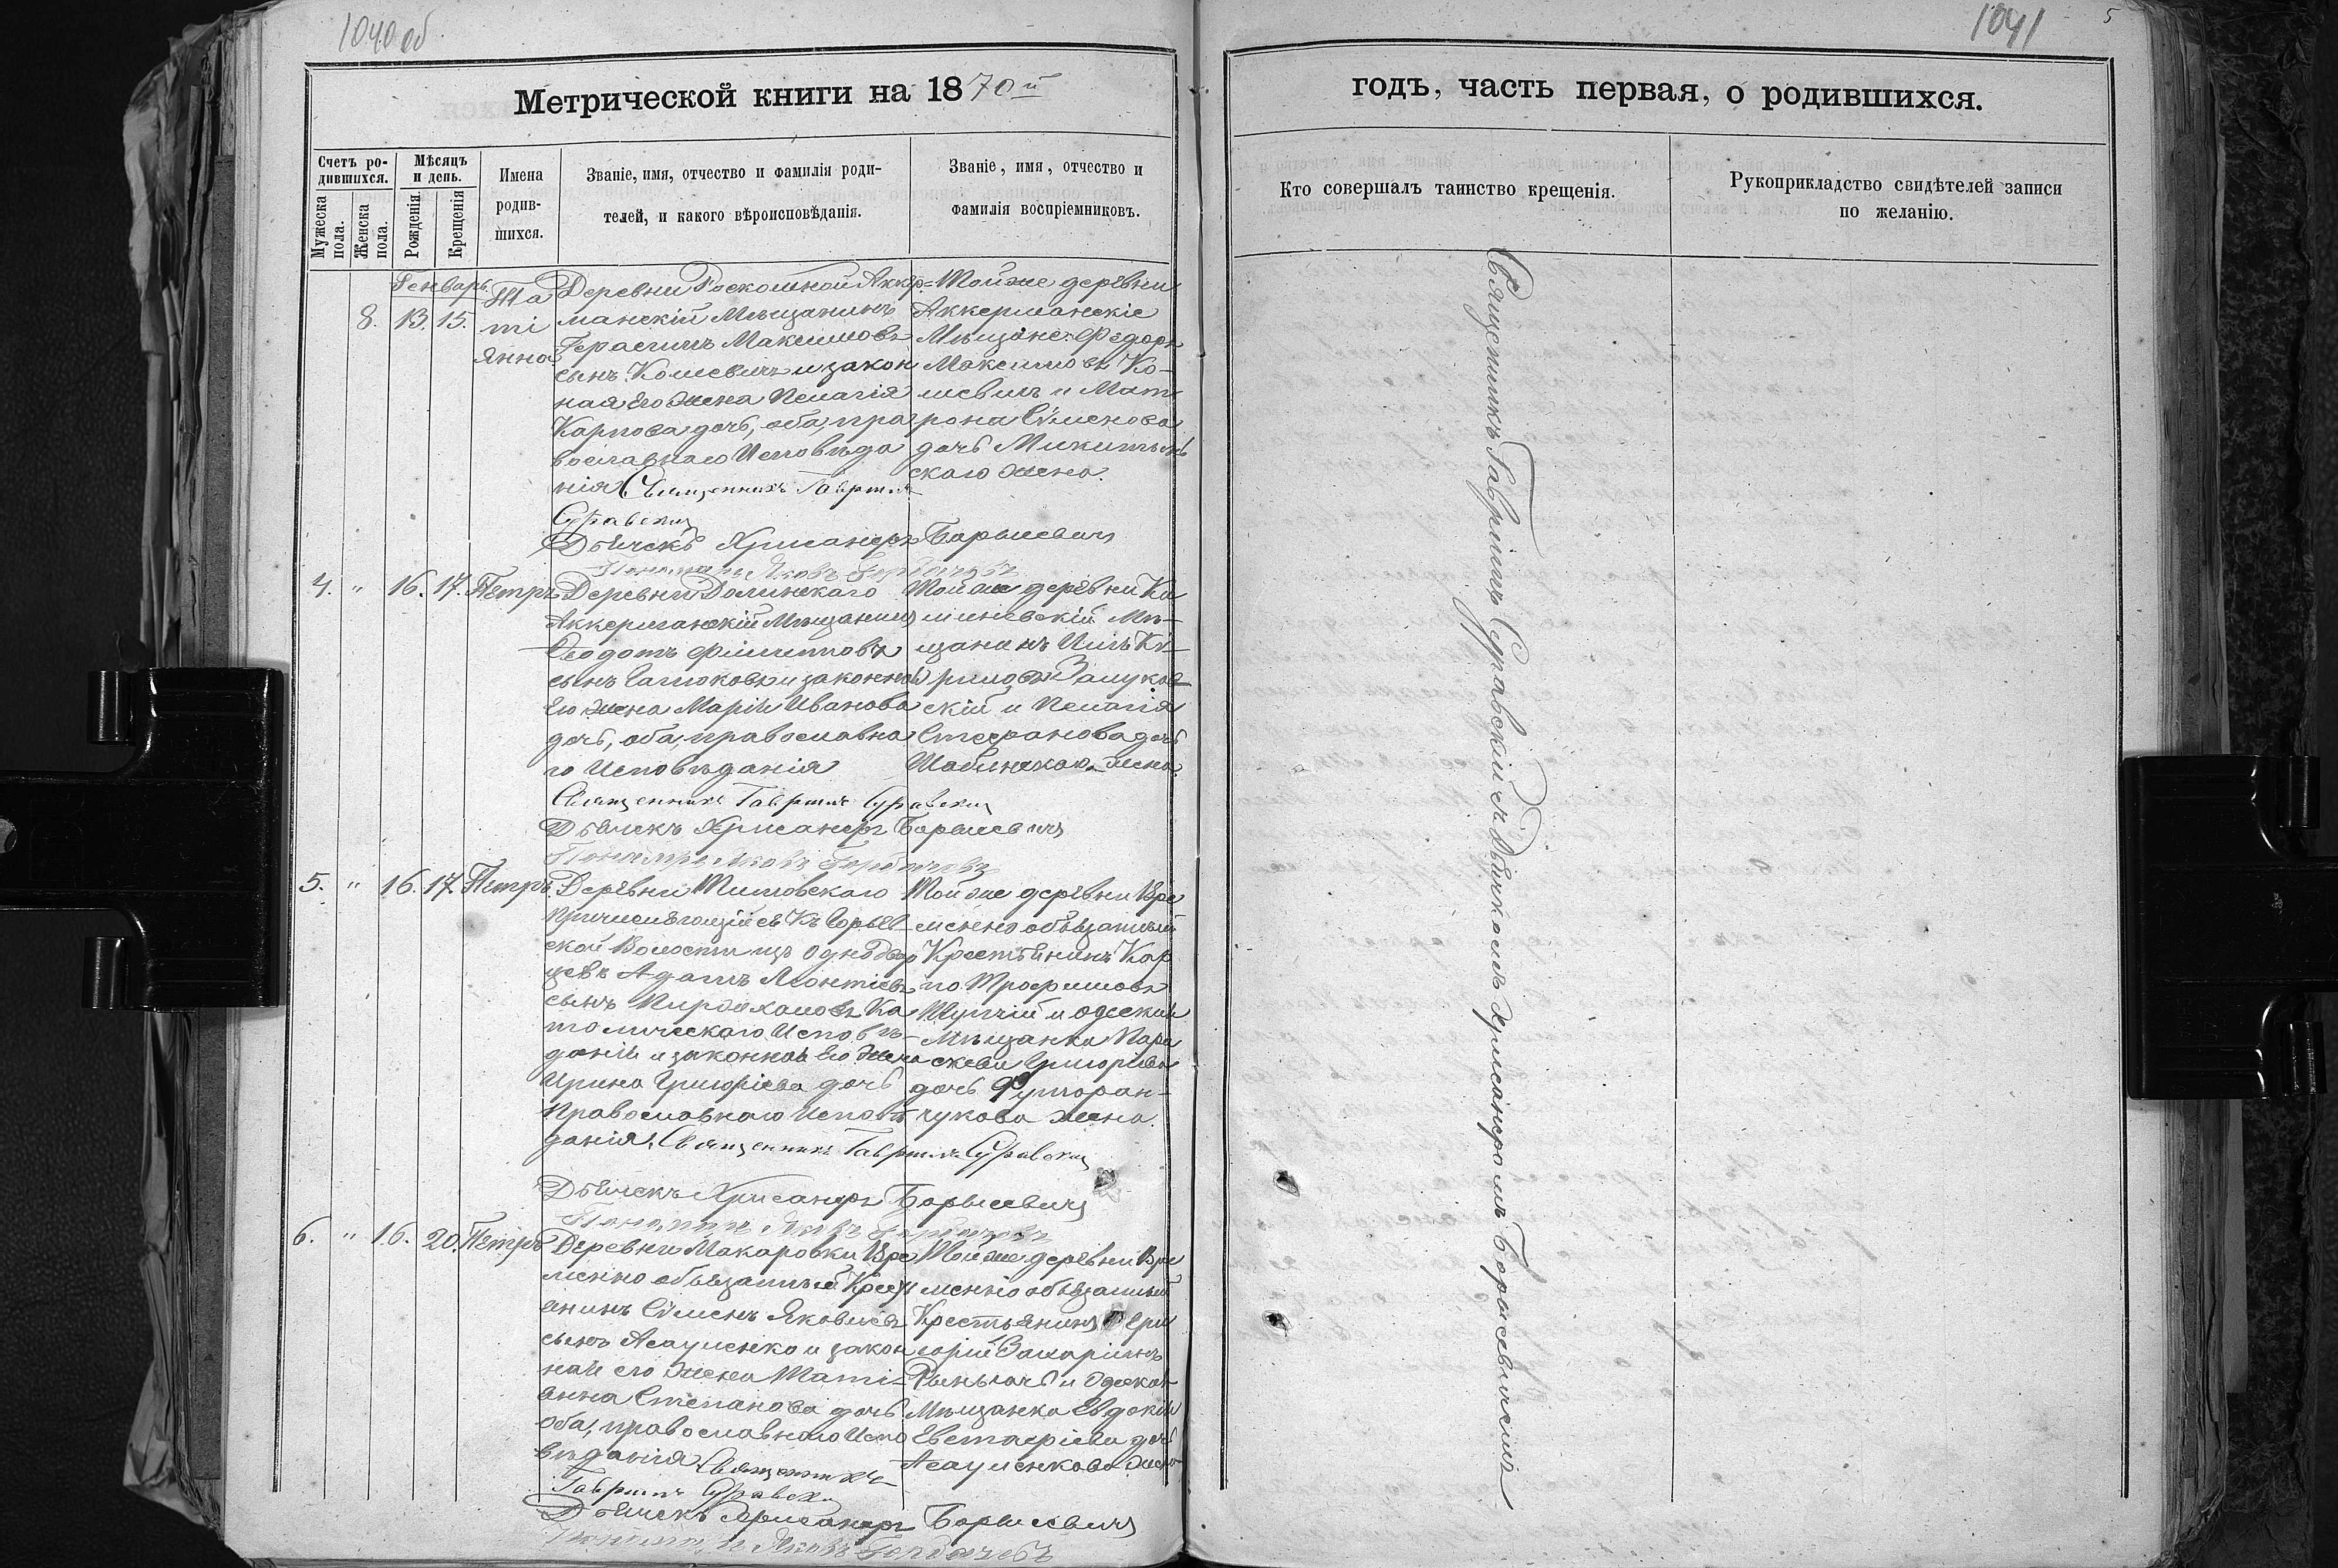 1040 об
Метрической книги на 1870й
Счетъ ро-
дившихся.
Мужеска пола.
Женска пола.
Мѣсяцъ
и день.
Рожденія.
Крещенія
Имена
родив-
шихся.
Званіе, имя, отчество и фамилія роди-
телей, и какого вѣроисповѣданія.
Званіе, имя, отчество и
фамилія воспріемниковъ.
Генварь.
8. 13. 15.
Та
ті
янна
Деревни Роскошной Аккер-
манскій Мѣщанинъ
Герасимъ Максимовъ
сынъ и закон
ная Его жена Пелагія
Карпова дочь, оба, пра
вославнаго Исповѣда
нія Священникъ Гавріилъ
Суравскій
Дьячекъ Хрисанфъ Борысевичъ
Пономарь Яковъ Горбачовъ
Той же деревни
Аккерманскіе
Мѣщане: Федоръ
Максимовъ
и Мат
рона Сѵменова
дочь
скаго жена.
4. " 16. 17. Петръ
Деревни Долинскаго
Аккерманскій Мѣщанинъ
Ѳеодотъ Филипповъ
сынъ и законная
Его жена Марія Иванова
дочь, оба, православна
го Исповѣданія
Священникъ Гавріилъ Суравскій
Дьячекъ Хрисанфъ Борысевичъ
Пономарь Яковъ Горбачовъ
Той же деревни Ки
шиневскій Мѣ-
щанинъ
скій и Пелагія
Стефанова дочь
жена.
5. " 16. 17. Петръ
Деревни Титовскаго
къ
ской Волости изъ Однодвор
цевъ Адамъ Леонтіевъ
сынъ Ка
толическаго Исповѣ-
данія и законная Его жена
Ирина Григоріева дочь
Православнаго Исповѣ
данія. Священникъ Гавріилъ Суравскій
Дьячекъ Хрисанфъ Борысевичъ
Пономарь Яковъ Горбачовъ
Той же деревни Вре
менно обязанный
Крестьянинъ Кар
по Трофимовъ
и Одеская
Мѣщанка Пара
скева Григорьева
дочь
чукова жена.
6. " 16. 20. Петръ
Деревни Макаровки Вре
менно обязанный Крест
янинъ Сѵменъ Яковлевъ
сынъ Асауленко и закон
ная его жена Таті-
анна Степанова дочь
оба, православнаго Испо
вѣданія Священникъ
Гавріилъ Суравскій
Дьячекъ Хрисанфъ Борысевичъ
Пономарь Яковъ Горбачевъ
Той же деревни Вре
менно обязанный
Крестьянинъ Гри
горій
и Одеская
Мѣщанка Евдокія
Евстафіева дочь
Асауленкова жена
1041
5
годъ, часть первая, о родившихся.
Кто совершалъ таинство крещенія.
Рукоприкладство свидѣтелей записи
по желанію.
Священникъ Гавріилъ Суравскій съ Дьячкомъ Хрисанфомъ Борысевичемъ